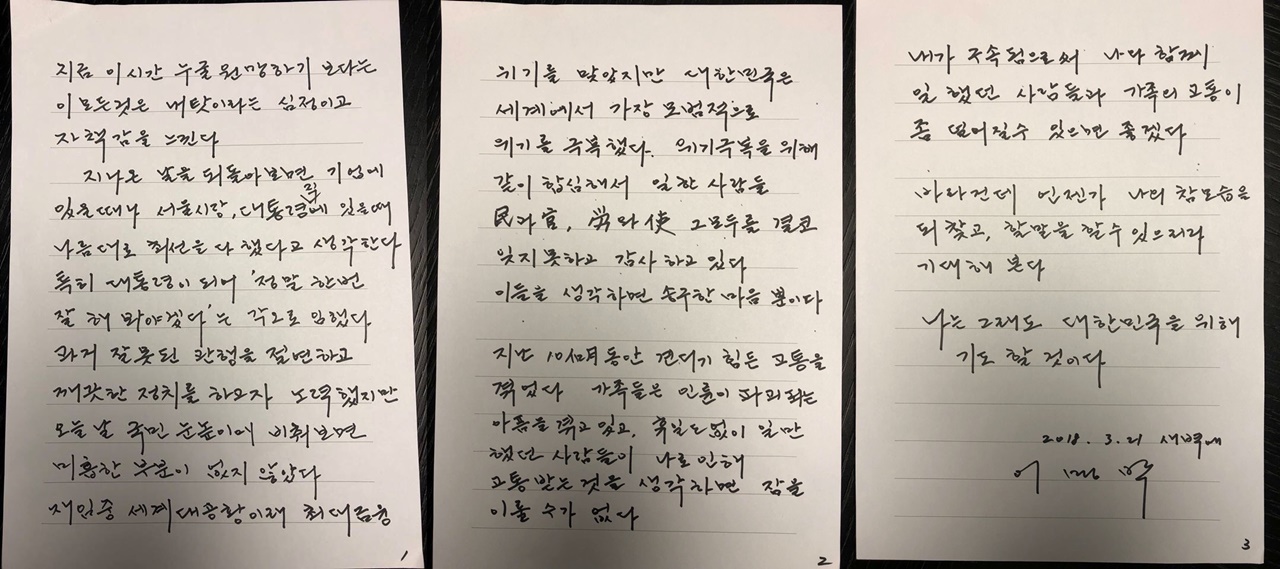 지금 이시간 누굴 원망하기 보다는
이 모든것은 내탓이라는 심정이고
자책감을 느낀다
지나온 날을 되돌아보면 기업에
있을때나 서울시장, 대통령직에 있을때
나름대로 최선을 다 했다고 생각한다
특히 대통령이 되어 '정말 한번
잘 해 봐야겠다'는 각오로 임했다
과거 잘못된 관행을 절연하고
깨끗한 정치를 하고자 노력했지만
오늘 날 국민 눈높이에 비춰보면
미흡한 부분이 없지 않았다
재임중 세계대공황이래 최대금융
1
위기를 맞았지만 대한민국은
세계에서 가장 모범적으로
위기를 극복했다. 위기극복을 위해
같이 합심해서 일한 사람들
民과 官, 勞와 使 그모두를 결코
잊지못하고 감사하고 있다
이들을 생각하면 송구한 마음 뿐이다
지난 10개月동안 견디기 힘든 고통을
겪었다 가족들은 인륜이 파괴되는
아픔을 겪고있고, 휴일도 없이 일만
했던 사람들이 나로 인해
고통받는것을 생각하면 잠을
이룰 수가 없다
2
내가 구속됨으로써 나와 함께
일 했던 사람들과 가족의 고통이
좀 덜어질수 있으면 좋겠다
바라건데 언젠가 나의 참모습을
되찾고, 할말을 할 수 있으리라
기대해 본다
나는 그래도 대한민국을 위해
기도 할 것이다
2018. 3. 21 새벽에
이 명 박
3